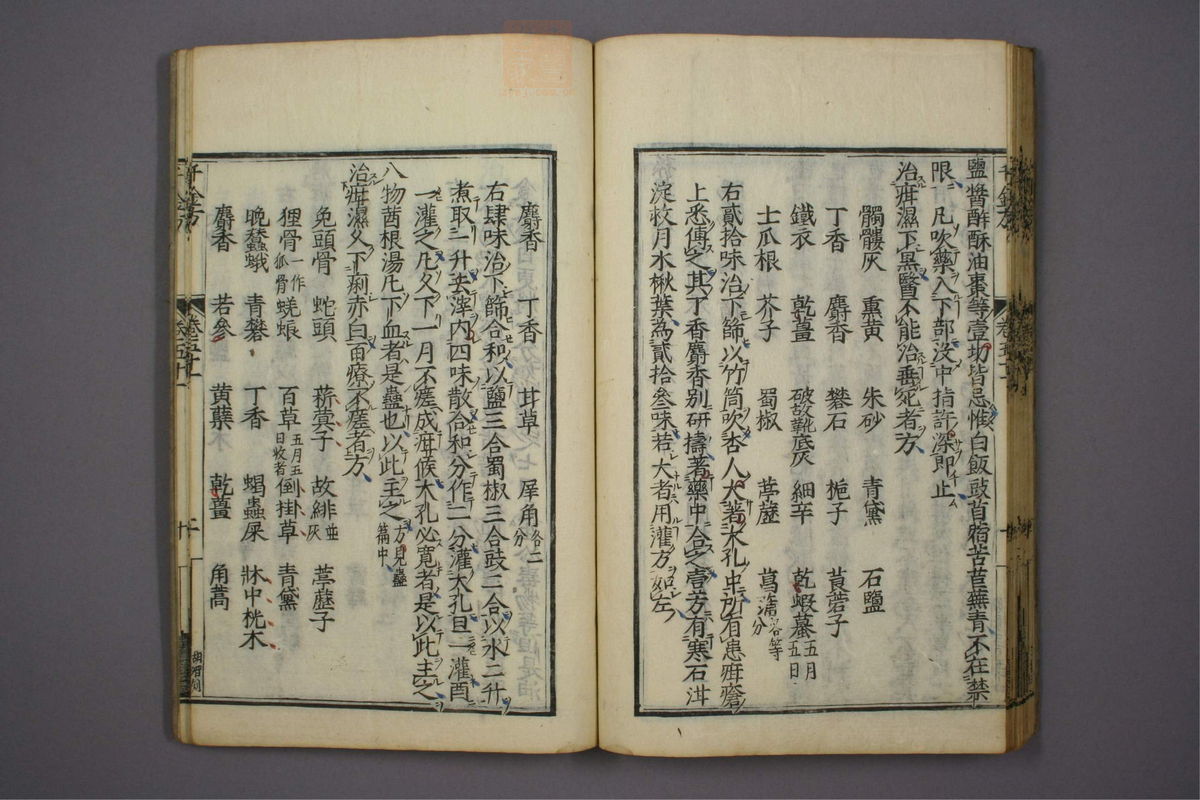 鹽醬酢酥油棗等壹切皆忌惟白飯豉苜蓿苦苣蕪青不在禁
限凡吹藥入下部没中指許深即止
治疳濕下黑醫不能治垂死者方
髑髏灰 熏黄 朱砂 青黛 石鹽
丁香 麝香 礬石 梔子 莨菪子
鐵衣 乾薑 破故靴底灰 細辛 乾蝦蟇五月五日
土瓜根 芥子 蜀椒 葶藶 菖蒲各等分
右貳拾味治下篩以竹筒吹杏人大著大孔中所有患疳瘡
上悉傅之其丁香麝香别研擣著藥中合之壹方有寒石泔
淀救月木楸葉為貳拾叁味若大者用灌方如左
麝香 丁香 甘草 犀角各二分
右肆味治下篩合和以鹽三合蜀椒三合豉二合以水二升
煮取一升去滓内四味散合和分作二分灌大孔旦一灌酉
一灌之凡久下一月不瘥成疳候大孔必寬者是以此主之
八物茜根湯凡下血者是蠱也以此主之方見蠱篇中
治疳濕久下痢赤白百療不瘥者方
兔頭骨 蛇頭 菥蓂子 故緋並灰 葶藶子
狸骨一作狐骨 蜣蜋 百草五月五日收者 倒掛草 青黛
晚蠶蛾 青礬 丁香 蝎蟲屎 牀中桄木
麝香 苦參 黄蘗 乾薑 角蒿
千金方